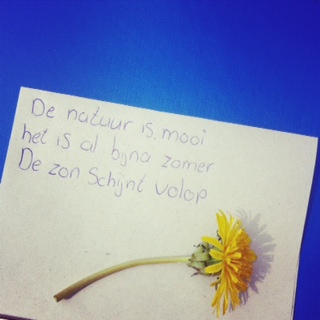 De natuur is mooi
het is al bijna zomer
De zon Schijnt volop